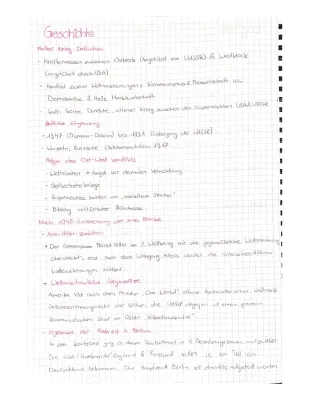 Geschichte
Kalter Krieg Definition
- Kräftemessen zwischen Ostblock (angeführt von UdSSR) & Westblock
(angeführt durch USA)
- Konflikt zweier Weltanschauungen: Kommunismus & Planwirtschaft vs.
Demokratie & freie Marktwirtschaft
- kalt: keine direkte, offener Krieg zwischen den Supermächten USA & UdSSR
zeitliche Eingrenzung
- 1947 (Truman-Doktrin) bis 1991 (Untergang der UdSSR)
- Wurzeln: Russische Oktoberrevolution 1917
Folgen des Ost-West Konflikts
- Wettrüsten & Angst vor atomaren Vernichtung
- Stellvertreterkriege
- Supermächte
- Bildung militärischer Bündnisse
Nach 1945
- Anti-Hitler-Koalition
• Der Gemeinsame Feind Hitler im 2. Weltkrieg hat die gegensätzliche Weltanschauung
überdeckt, erst nach dem Untergang Hitlers wurden die
Weltanschauungen
- Weltanschauliche Gegensätze
Amerika tritt nach dem Prinzip „One World"
Selbstbestimmungsrecht der Völker, die UdSSR dagegen
Kommunistischen Staat im Osten
-
In der Konferenz ging es darum Deutschland in 4 Besatzungszonen
Die USA / Frankreich / England & Russland sollen je ein Teil von
Deutschland bekommen. Die Hauptstadt Berlin soll ebenfalls aufgeteilt werden